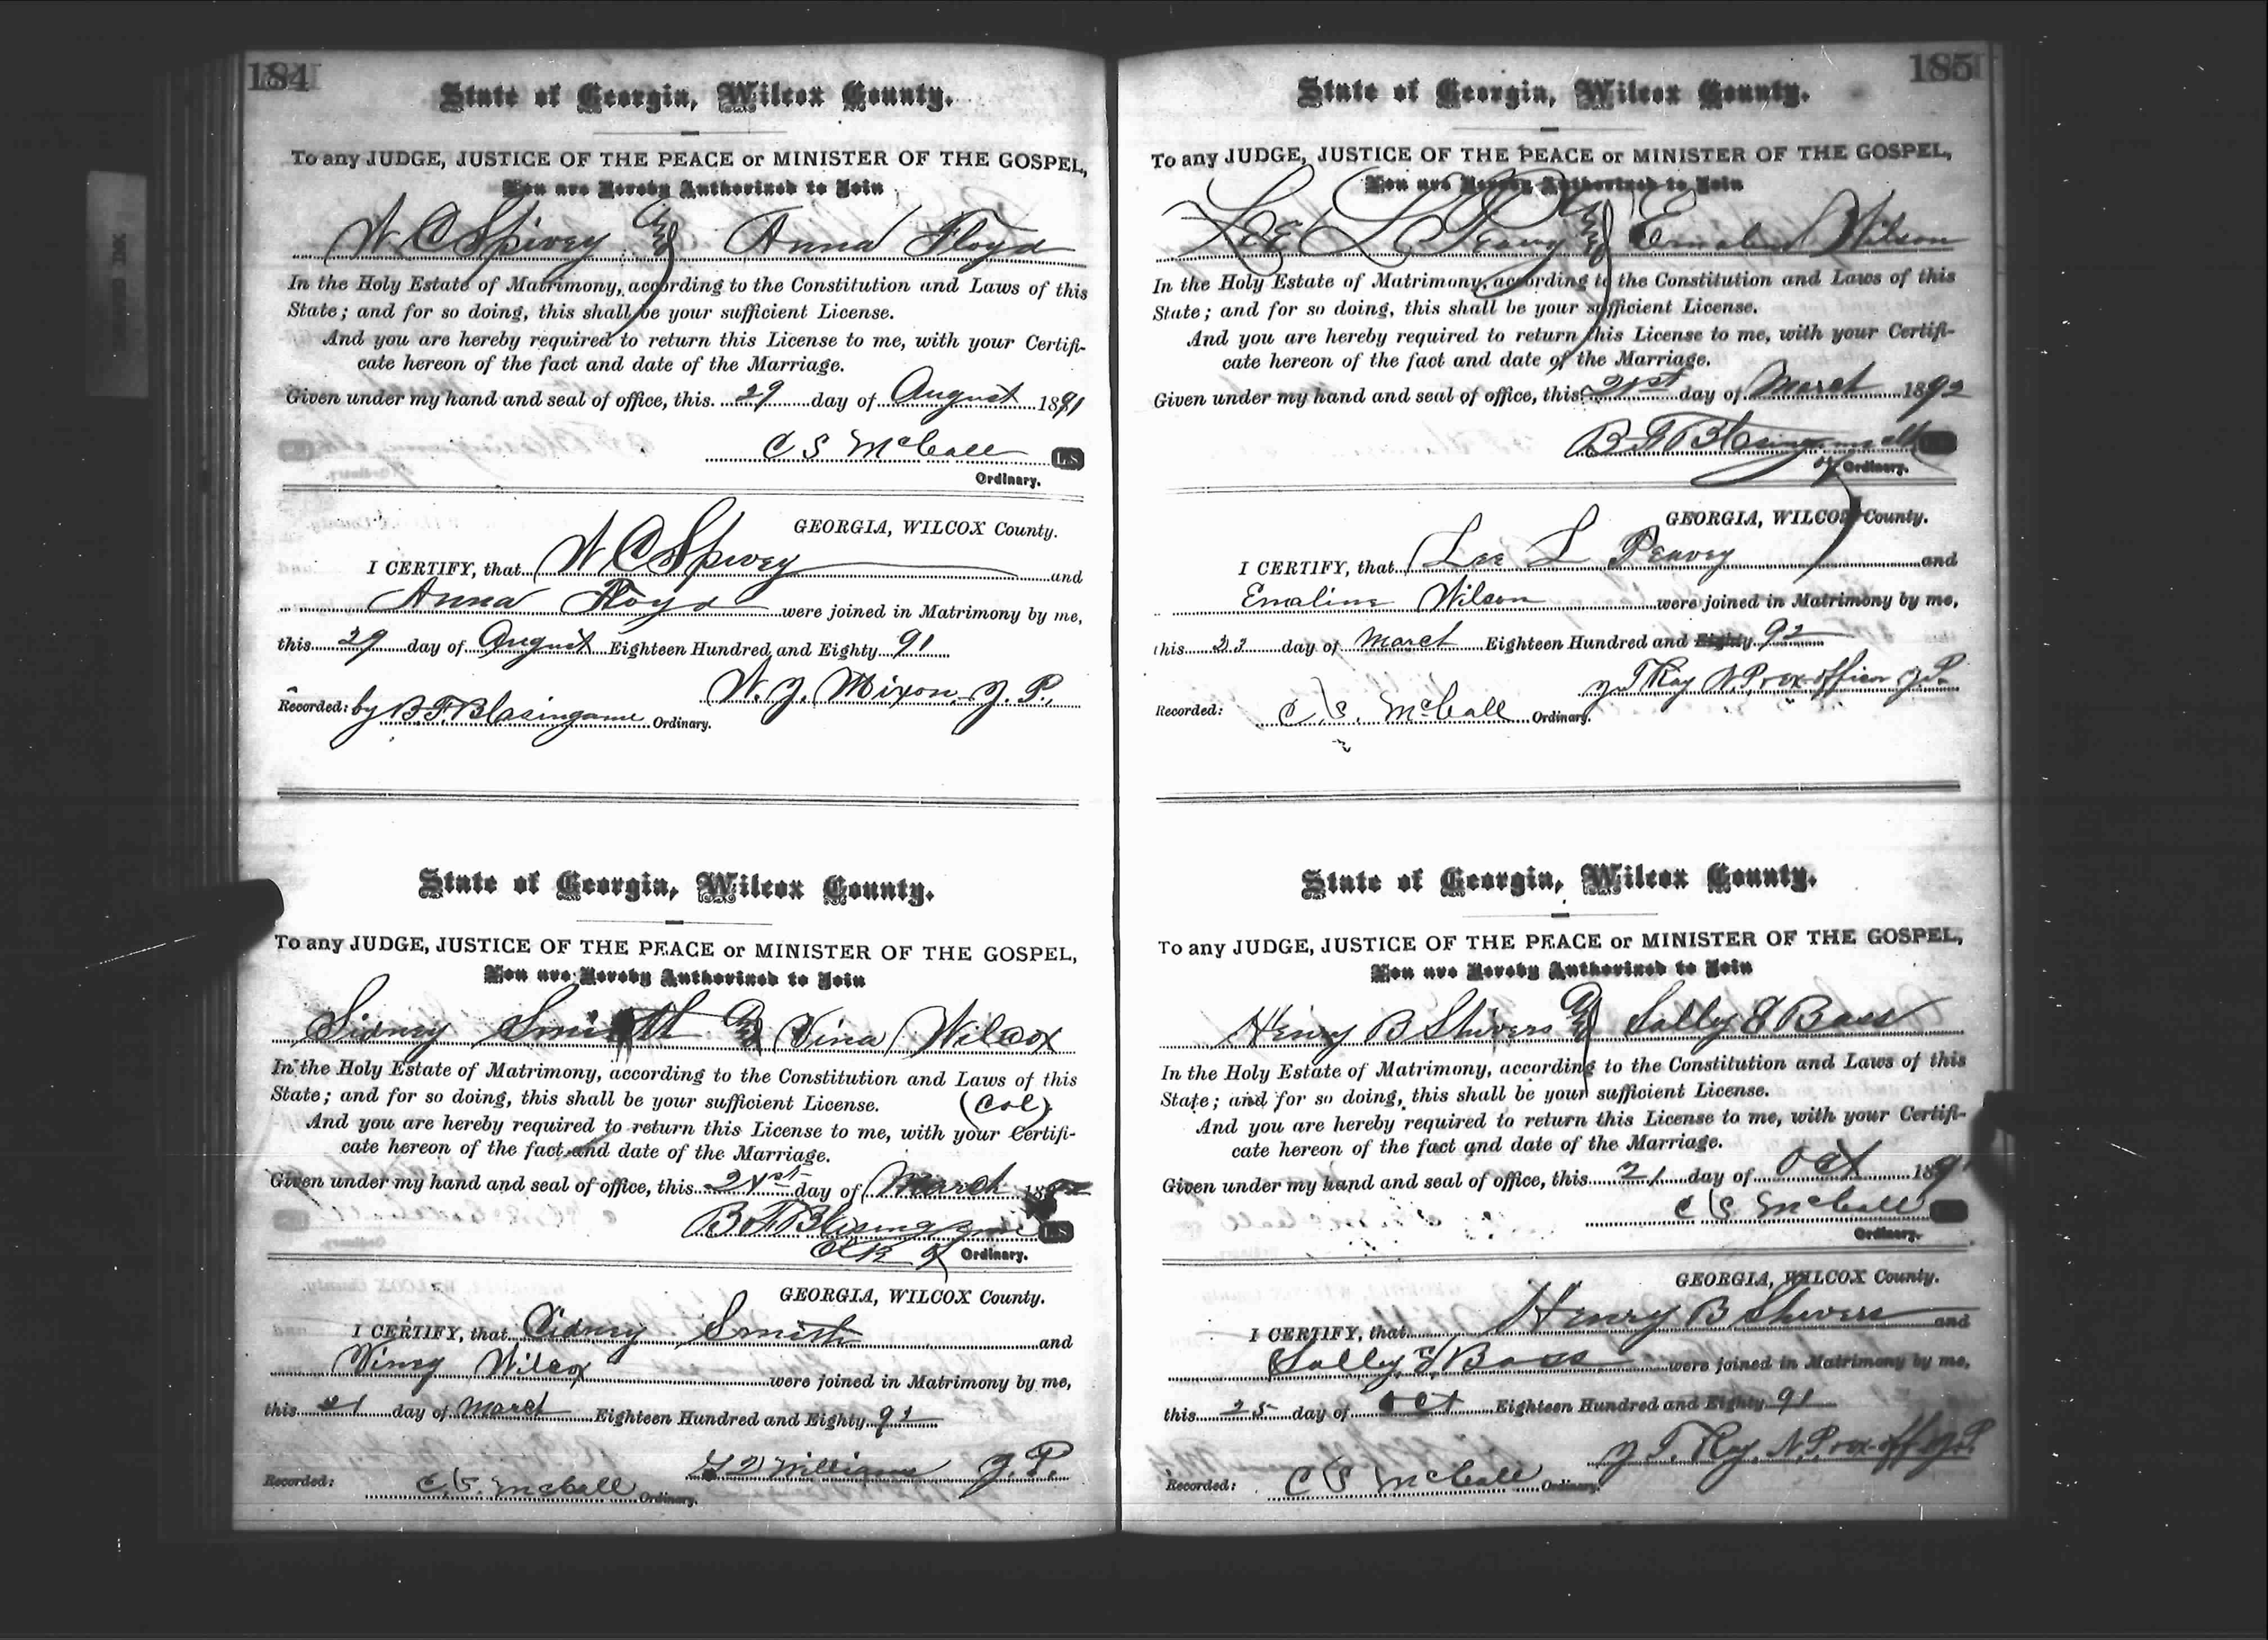 184
State of Georgia, Wilcox County.
To any JUDGE, JUSTICE OF THE PEACE or MINISTER OF THE GOSPEL,
You are Hereby Authorized to Join
W C Spivey and Anna Floyd
In the Holy Estate of Matrimony, according to the Constitution and Laws of this
State; and for so doing, this shall be your sufficient License.
And you are hereby required to return this License to me, with your Certifi-
cate hereon of the fact and date of the Marriage.
Given under my hand and seal of office, this 29 day of August 1891
C S McCall LS
Ordinary.
GEORGIA, WILCOX County.
I CERTIFY, that W C Spivey and
Anna Floyd were joined in Matrimony by me,
this 29 day of August Eighteen Hundred and Eighty 91
W. J. Mixon J. P.
Recorded: by B F Blasingame Ordinary.
State of Georgia, Wilcox County.
To any JUDGE, JUSTICE OF THE PEACE or MINISTER OF THE GOSPEL,
You are Hereby Authorized to Join
Sidney Smith and Vina Wilcox
In the Holy Estate of Matrimony, according to the Constitution and Laws of this
State; and for so doing, this shall be your sufficient License. (Col)
And you are hereby required to return this License to me, with your Certifi-
cate hereon of the fact and date of the Marriage.
Given under my hand and seal of office, this 21st day of March 1892
B F Blasingame LS
Clk Ordinary.
GEORGIA, WILCOX County.
I CERTIFY, that Cidney Smith and
Viney Wilcox were joined in Matrimony by me,
this 21 day of March Eighteen Hundred and Eighty 92
Williams J. P.
Recorded: C. S. McCall Ordinary.
185
State of Georgia, Wilcox County.
To any JUDGE, JUSTICE OF THE PEACE or MINISTER OF THE GOSPEL,
You are Hereby Authorized to Join
Lee L Peavy and Emaline Wilson
In the Holy Estate of Matrimony, according to the Constitution and Laws of this
State; and for so doing, this shall be your sufficient License.
And you are hereby required to return this License to me, with your Certifi-
cate hereon of the fact and date of the Marriage.
Given under my hand and seal of office, this 21st day of March 1892
B F Blasingame
Ordinary.
GEORGIA, WILCOX County.
I CERTIFY, that Lee L Peavey and
Emaline Wilson were joined in Matrimony by me,
this 23 day of March Eighteen Hundred and Eighty 92
J. T Ray N. P. & ex-officio J. P.
Recorded: C. S. McCall Ordinary.
State of Georgia, Wilcox County.
To any JUDGE, JUSTICE OF THE PEACE or MINISTER OF THE GOSPEL,
You are Hereby Authorized to Join
Henry B Shivers and Sally E Bass
In the Holy Estate of Matrimony, according to the Constitution and Laws of this
State; and for so doing, this shall be your sufficient License.
And you are hereby required to return this License to me, with your Certifi-
cate hereon of the fact and date of the Marriage.
Given under my hand and seal of office, this 21 day of Oct 1891
C S McCall
Ordinary.
GEORGIA, WILCOX County.
I CERTIFY, that Henry B Shivers and
Sally E Bass were joined in Matrimony by me,
this 25 day of Oct Eighteen Hundred and Eighty 91
J. T. Ray, N. P. & ex-off J. P.
Recorded: C S McCall Ordinary.